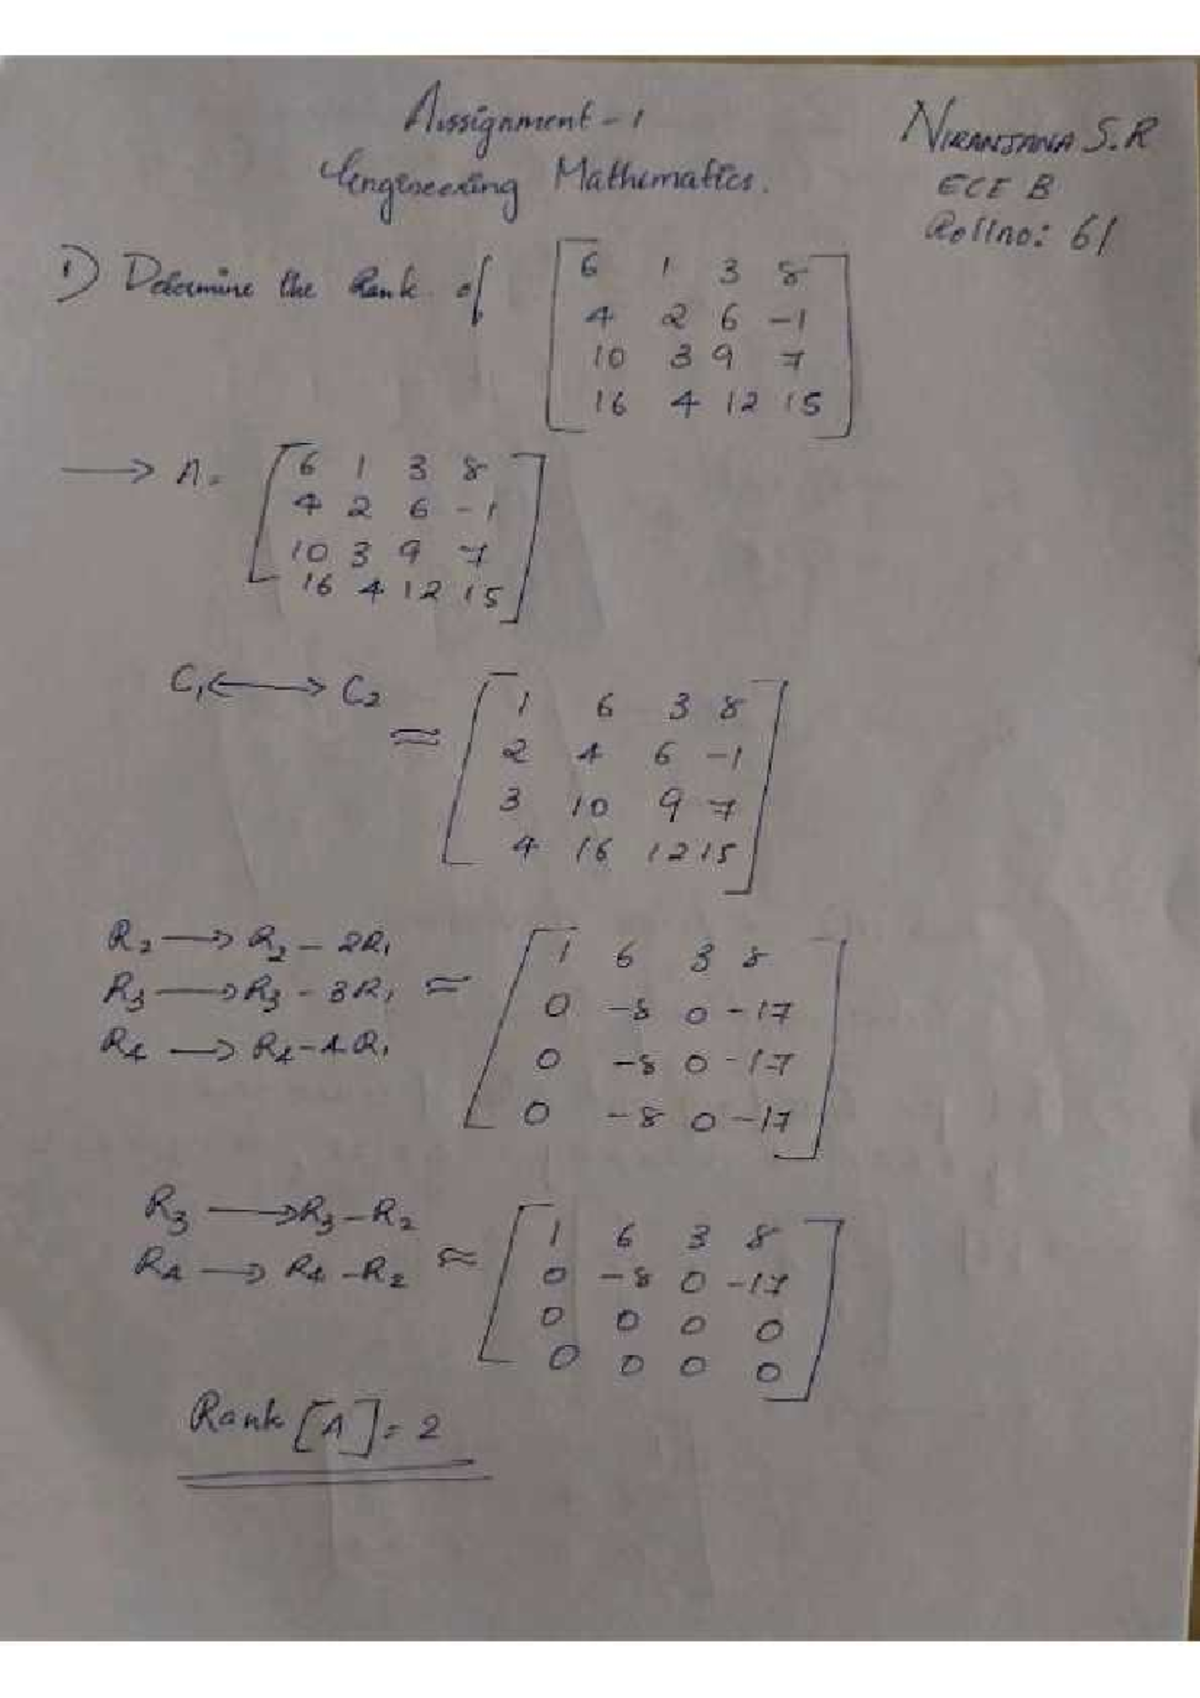 Assignment - 1
Engineering Mathematics.
NIRANJANA S.R
ECE B
Rollno: 61
1) Determine the Rank of
6 1 3 8
4 2 6 -1
10 3 9 7
16 4 12 15
→ A =
6 1 3 8
4 2 6 -1
10 3 9 7
16 4 12 15
C₁ ↔ C₂
≈
1 6 3 8
2 4 6 -1
3 10 9 7
4 16 12 15
R₂ → R₂ - 2R₁
R₃ → R₃ - 3R₁ ≈
R₄ → R₄ - 4R₁
1 6 3 8
0 -8 0 -17
0 -8 0 -17
0 -8 0 -17
R₃ → R₃ - R₂
R₄ → R₄ - R₂ ≈
1 6 3 8
0 -8 0 -17
0 0 0 0
0 0 0 0
Rank [A] = 2